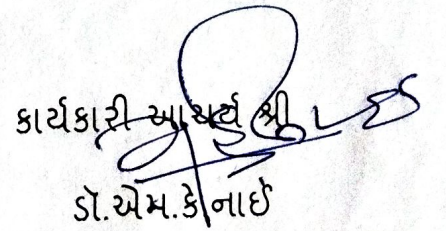 કાર્યકારી આચાર્ય શ્રી
ડૉ.એમ.કે.નાઈ